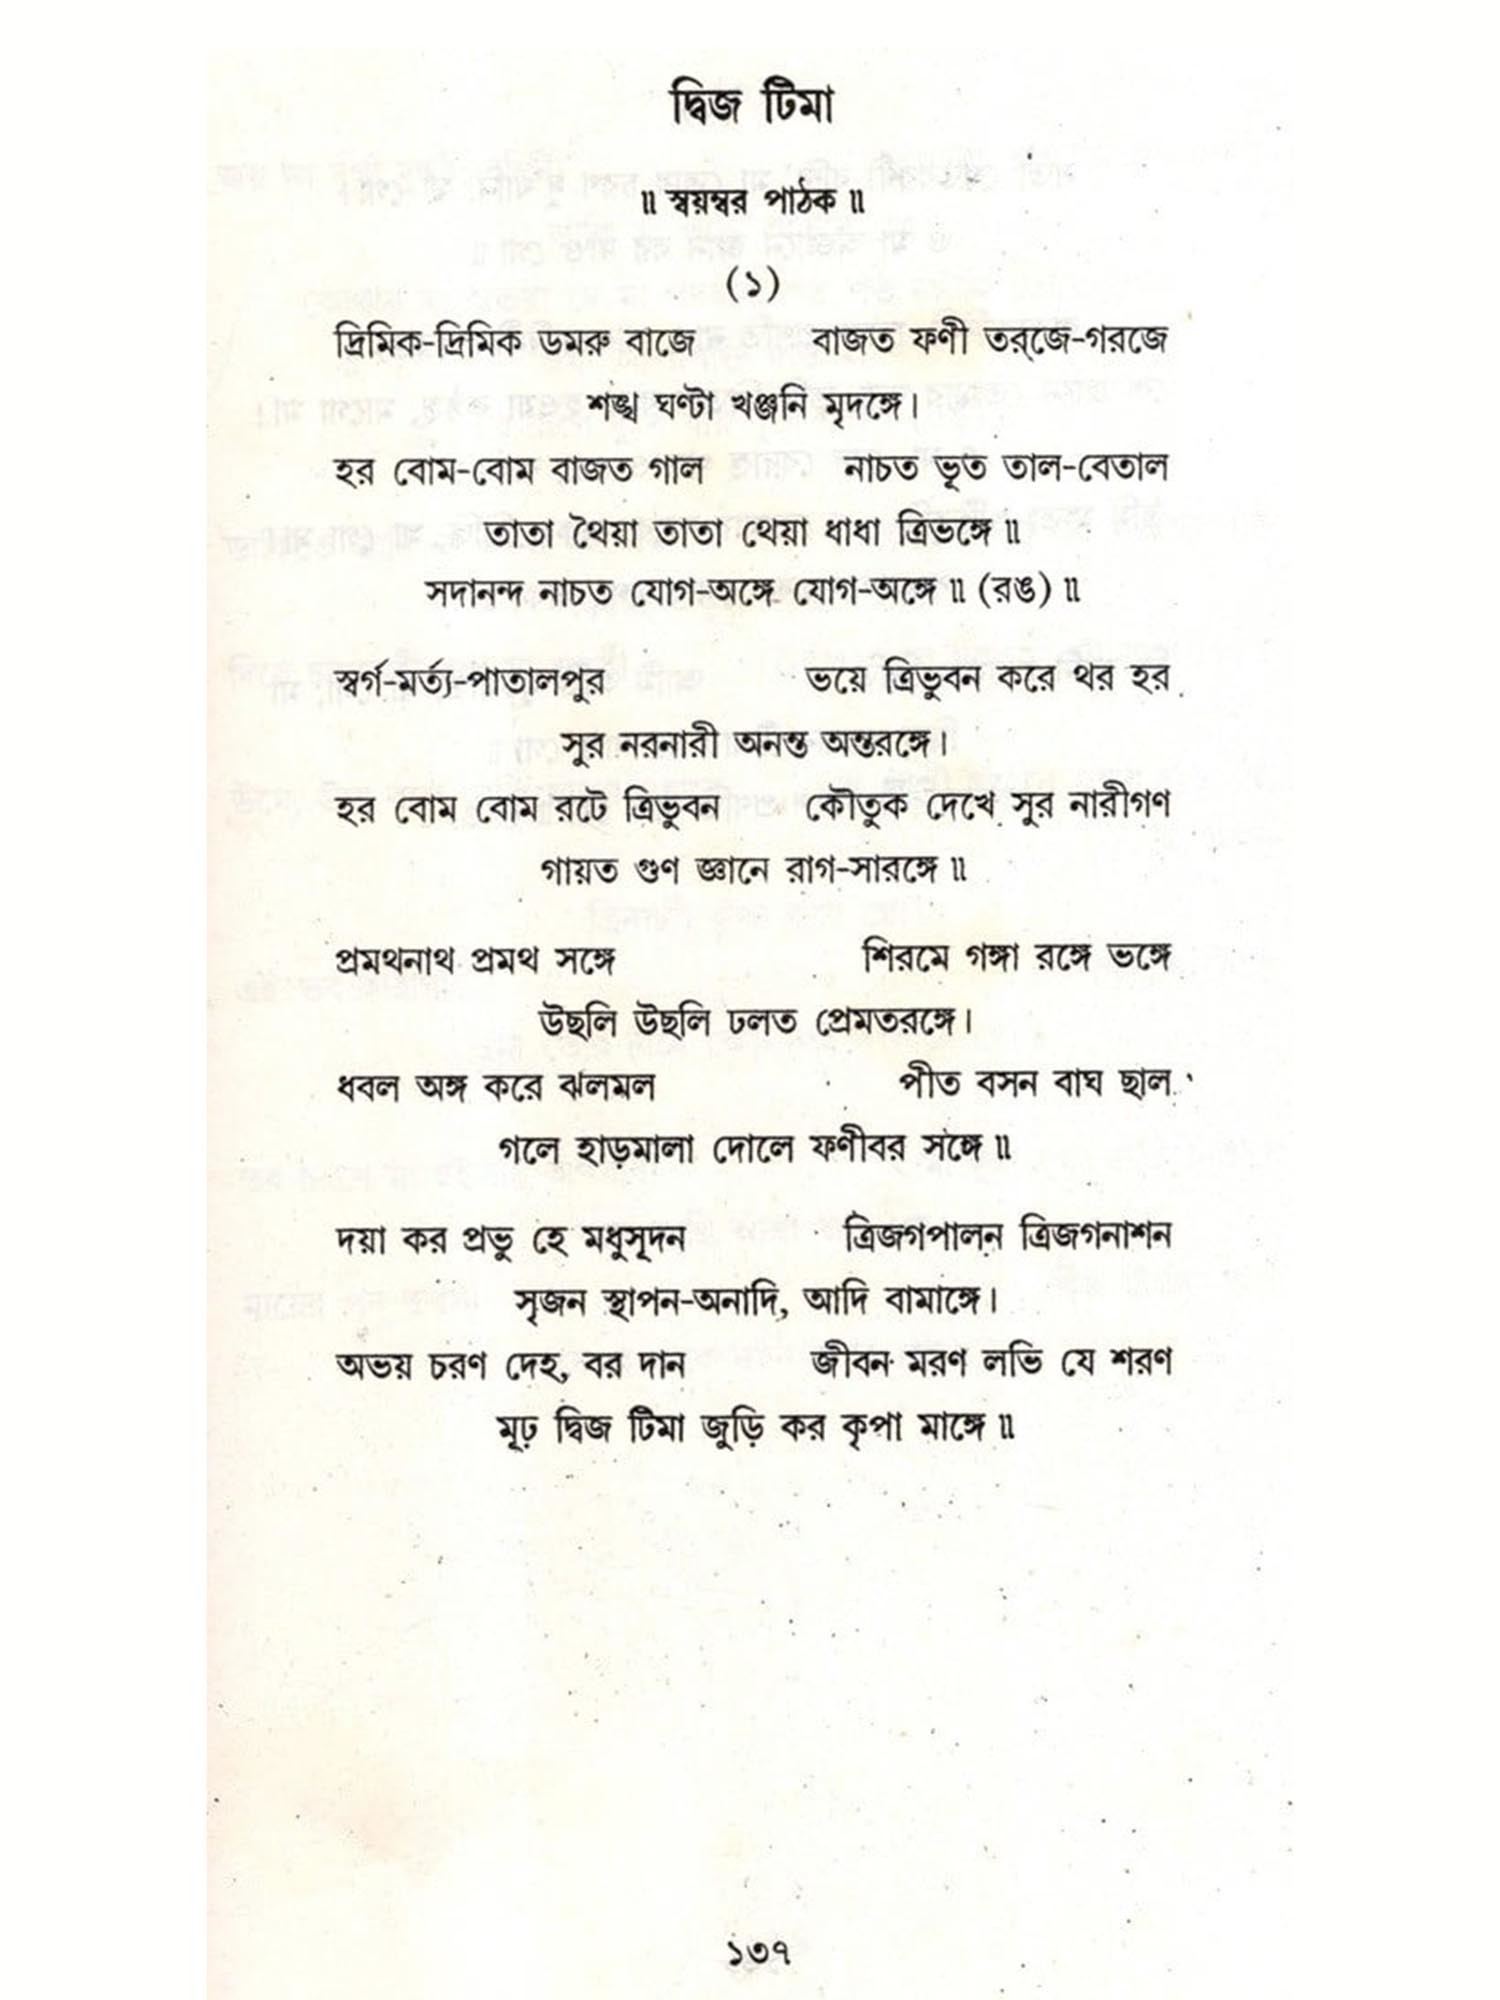 দ্বিজ টিমা
॥ স্বয়ম্বর পাঠক ॥
(১)
দ্রিমিক-দ্রিমিক ডমরু বাজে বাজত ফণী তর্‌জে-গরজে
শঙ্খ ঘণ্টা খঞ্জনি মৃদঙ্গে।
হর বোম-বোম বাজত গাল নাচত ভূত তাল-বেতাল
তাতা থৈয়া তাতা থেয়া ধাধা ত্রিভঙ্গে ॥
সদানন্দ নাচত যোগ-অঙ্গে যোগ-অঙ্গে ॥ (রঙ) ॥
স্বর্গ-মর্ত্য-পাতালপুর ভয়ে ত্রিভুবন করে থর হর
সুর নরনারী অনন্ত অন্তরঙ্গে।
হর বোম বোম রটে ত্রিভুবন কৌতুক দেখে সুর নারীগণ
গায়ত গুণ জ্ঞানে রাগ-সারঙ্গে ॥
প্রমথনাথ প্রমথ সঙ্গে শিরমে গঙ্গা রঙ্গে ভঙ্গে
উছলি উছলি ঢলত প্রেমতরঙ্গে।
ধবল অঙ্গ করে ঝলমল পীত বসন বাঘ ছাল
গলে হাড়মালা দোলে ফণীবর সঙ্গে ॥
দয়া কর প্রভু হে মধুসূদন ত্রিজগপালন ত্রিজগনাশন
সৃজন স্থাপন-অনাদি, আদি বামাঙ্গে।
অভয় চরণ দেহ, বর দান জীবন মরণ লভি যে শরণ
মূঢ় দ্বিজ টিমা জুড়ি কর কৃপা মাঙ্গে ॥
১৩৭